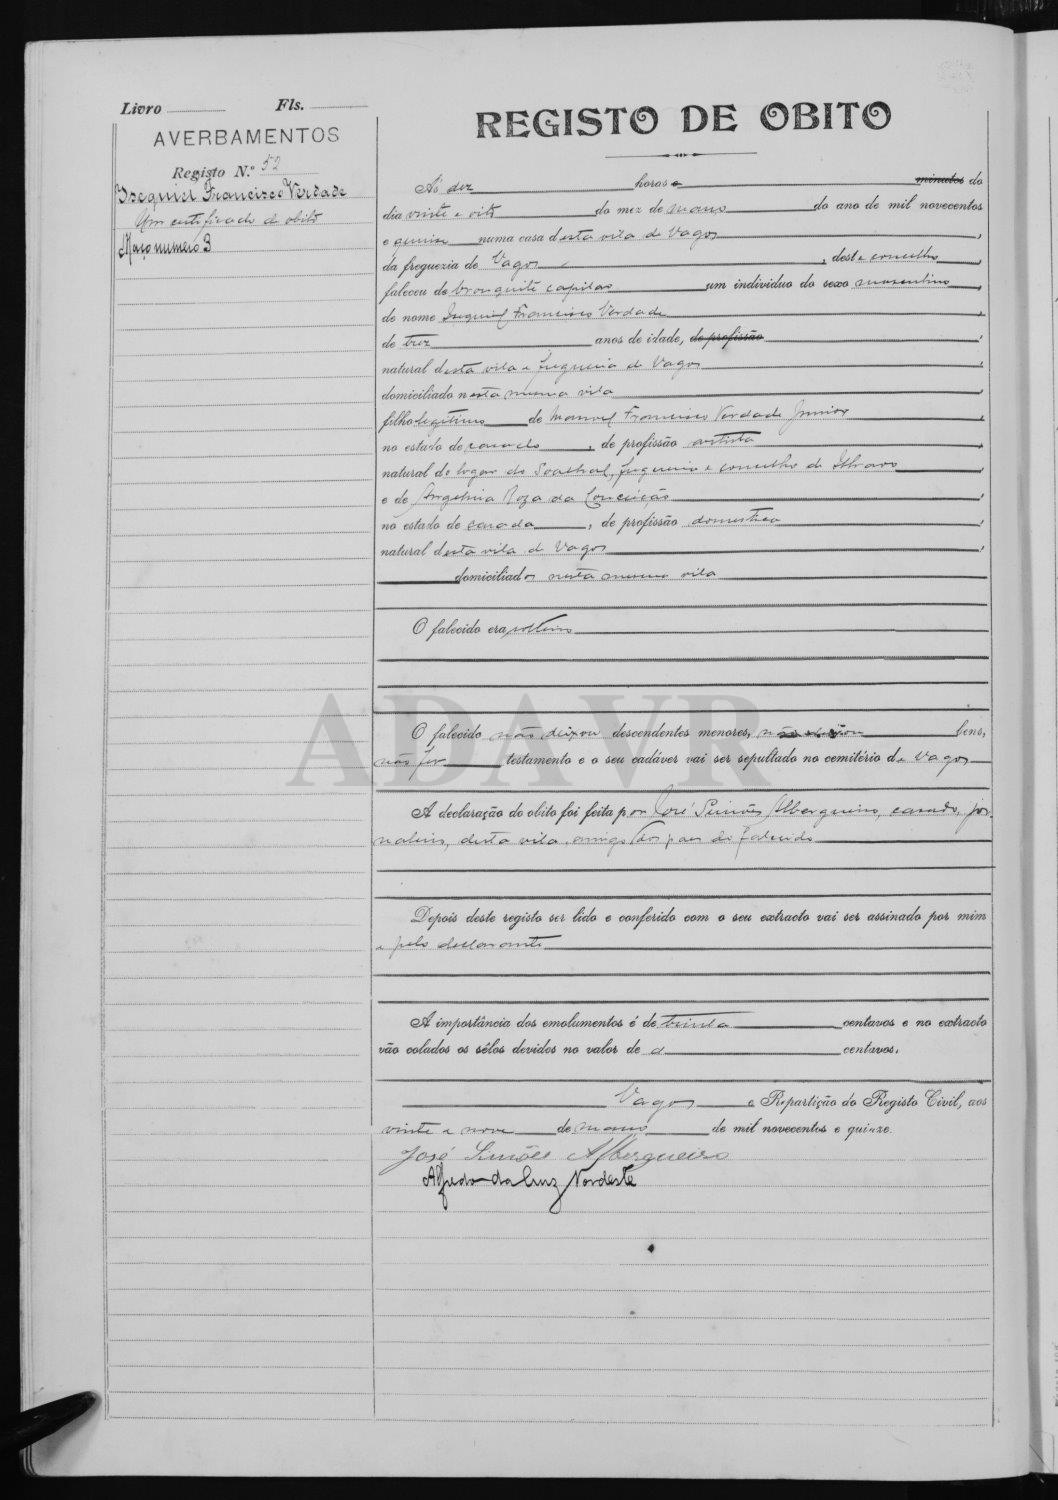 Livro Fls.
AVERBAMENTOS
Registo N.º 52
Isequiel Francisco Verdade
Um certificado d obito
Maço numero 3
REGISTO DE OBITO
Ás dez horas e minutos do
dia vinte e oito do mez de maio do ano de mil novecentos
e quinze numa casa desta vila de Vagos,
da freguezia de Vagos, deste concelho,
faleceu de bronquite capilar um individuo do sexo masculino,
de nome Isequiel Francisco Verdade,
de trez anos de idade, de profissão,
natural desta vila e freguezia de Vagos,
domiciliado nesta mesma vila,
filho legitimo de Manuel Francisco Verdade Junior,
no estado de casado, de profissão artista,
natural do logar do freguezia e concelho de Ilhavo,
e de Angelina Roza da Conceição,
no estado de casada, de profissão domestica,
natural desta vila d Vagos,
domiciliados nesta mesma vila
O falecido era solteiro
O falecido não deixou descendentes menores, bens,
não fez testamento e o seu cadáver vai ser sepultado no cemitério de Vagos
A declaração do obito foi feita por José Simões Albergueiro, casado, jor
naleiro, desta vila, amigo dos paes do falecido
Depois deste registo ser lido e conferido com o seu extracto vai ser assinado por mim
e pelo declarante
A importância dos emolumentos é de trinta centavos e no extracto
vão colados os sêlos devidos no valor de centavos.
Vagos e Repartição do Registo Civil, aos
vinte e nove de maio de mil novecentos e quinze.
José Simões Albergueiro
Alfredo da Cruz Nordeste
ADAVR